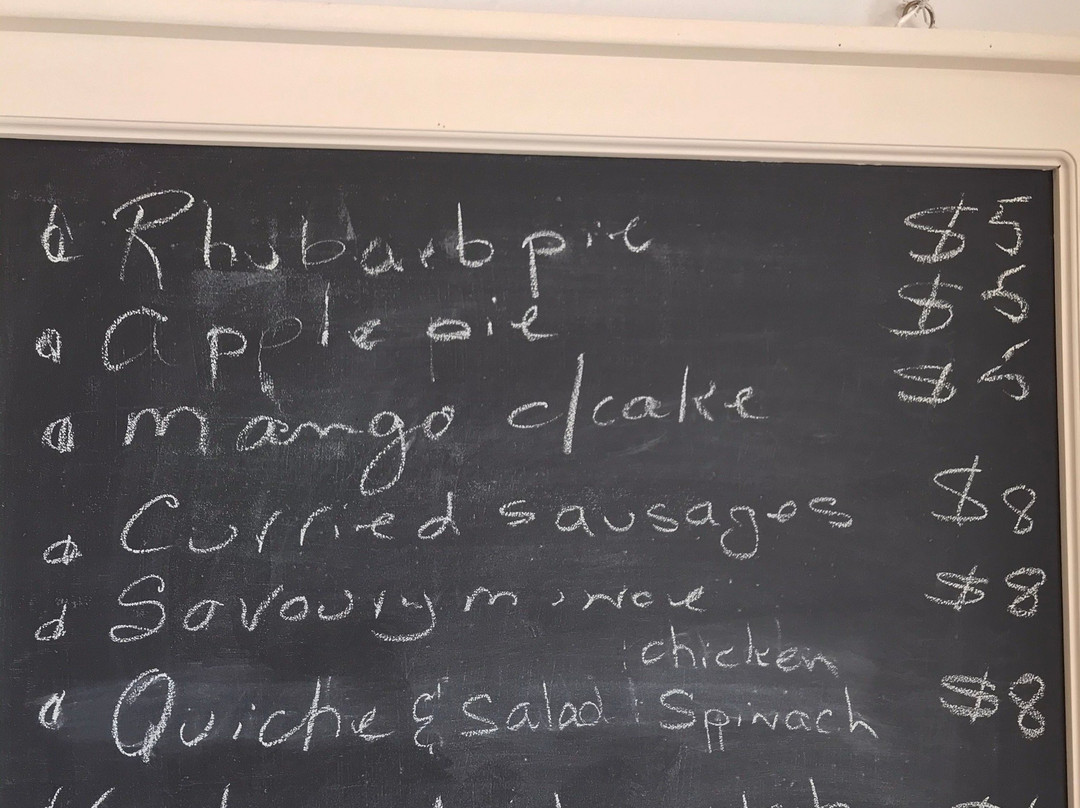 Rhubarb pie $5
Apple pie $5
mango c/cake $5
Curried sausages $8
Savoury mince $8
chicken
Quiche & Salad Spinach $8